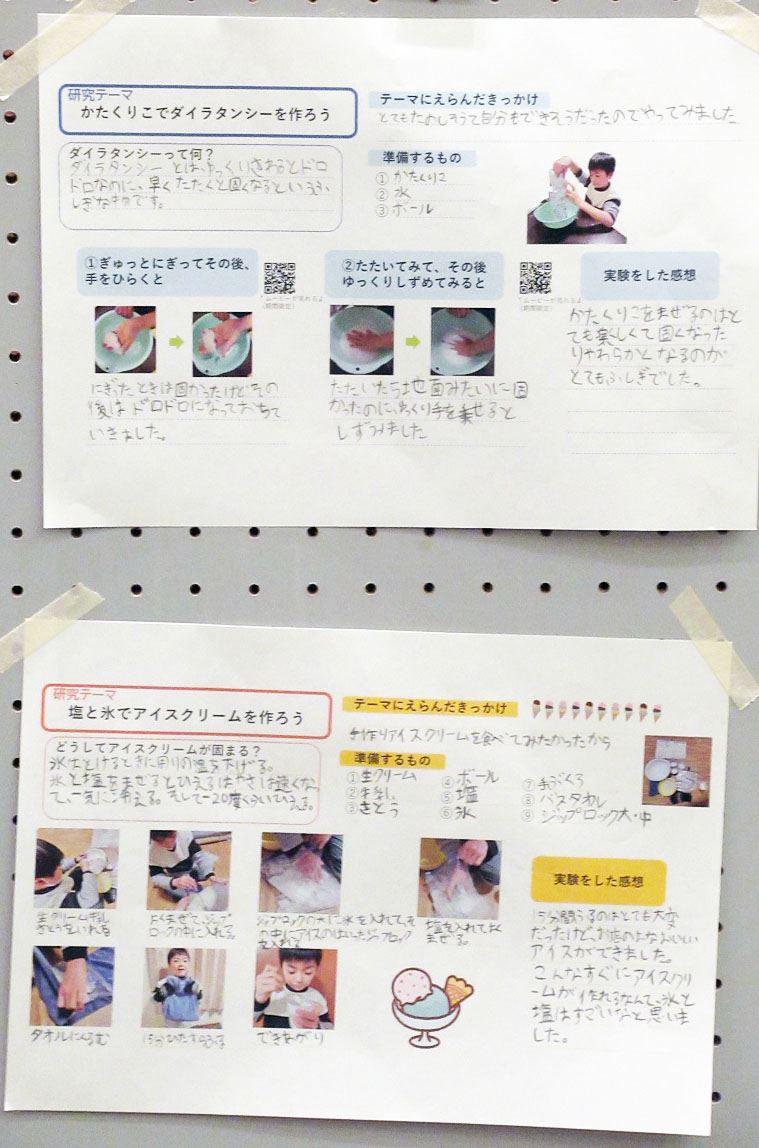 研究テーマ
かたくりこでダイラタンシーを作ろう
テーマにえらんだきっかけ
とてもたのしそうで自分もできそうだったのでやってみました
ダイラタンシーって何?
ダイラタンシーとは、ゆっくりさわるとドロ
ドロなのに、早くたたくと固くなるというふ
しぎなものです。
準備するもの
① かたくりこ
② 水
③ ボール
①ぎゅっとにぎってその後、
手をひらくと
*ムービーが見れるよ
(期間限定)
にぎったときは固かったけどその
後はドロドロになっておちて
いきました。
②たたいてみて、その後
ゆっくりしずめてみると
*ムービーが見れるよ
(期間限定)
たたいたら地面みたいに固
かったのに、ゆっくり手を乗せると
しずみました
実験をした感想
かたくりこをまぜるのはと
ても楽しくて固くなった
りやわらかくなるのが
とてもふしぎでした。
研究テーマ
塩と氷でアイスクリームを作ろう
テーマにえらんだきっかけ
手作りアイスクリームを食べてみたかったから
どうしてアイスクリームが固まる?
氷はとけるときに周りの温を下げる。
氷と塩をまぜるとひえるはやさは速くなっ
て、一気に冷える。そして-20度くらいでひえる。
準備するもの
①生クリーム
②牛乳
③さとう
④ボール
⑤塩
⑥氷
⑦手ぶくろ
⑧バスタオル
⑨ジップロック大・中
生クリーム牛乳
さとうをいれる
よくまぜて、ジップ
ロックの中に入れる。
ジップロックの大に氷を入れて、そ
の中にアイスのはいったジップロック
を入れる
塩を入れてよく
まぜる。
タオルにくるむ
15分ひたすらふる
できあがり
実験をした感想
15分間ふるのはとても大変
だったけど、お店のようなおいしい
アイスができました。
こんなすぐにアイスクリ
ームが作れるなんて、氷と
塩はすごいなと思いま
した。